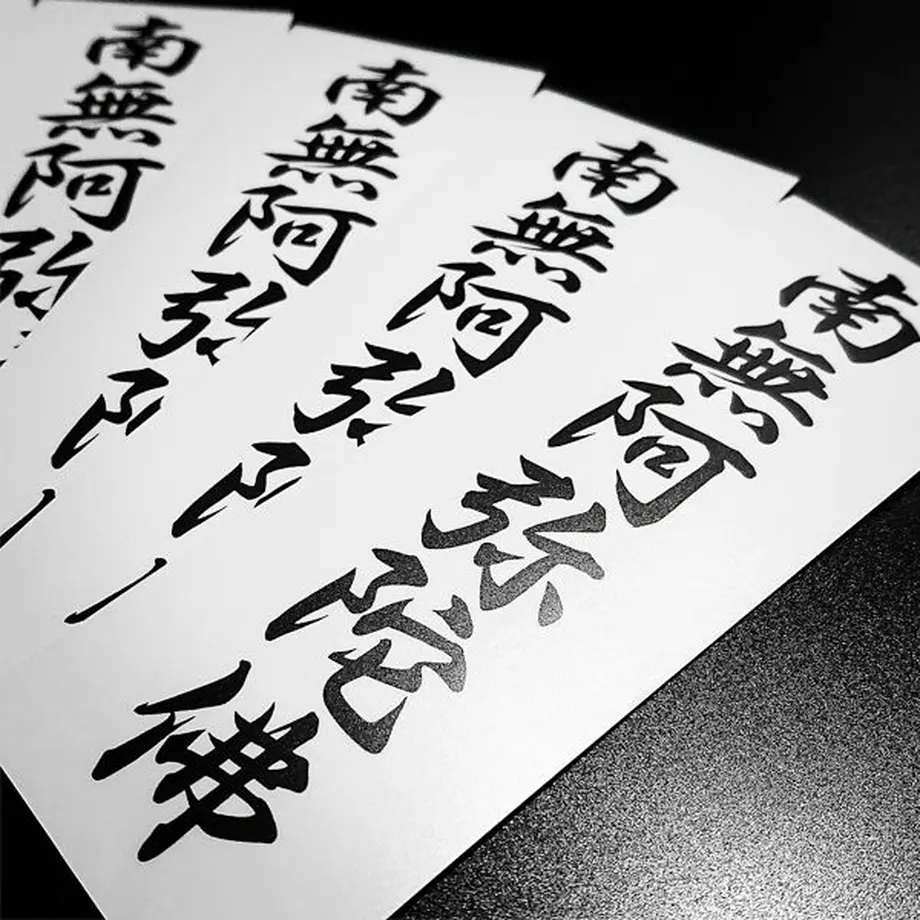 南無阿弥陀佛
南無阿弥
南無阿弥
南無阿弥